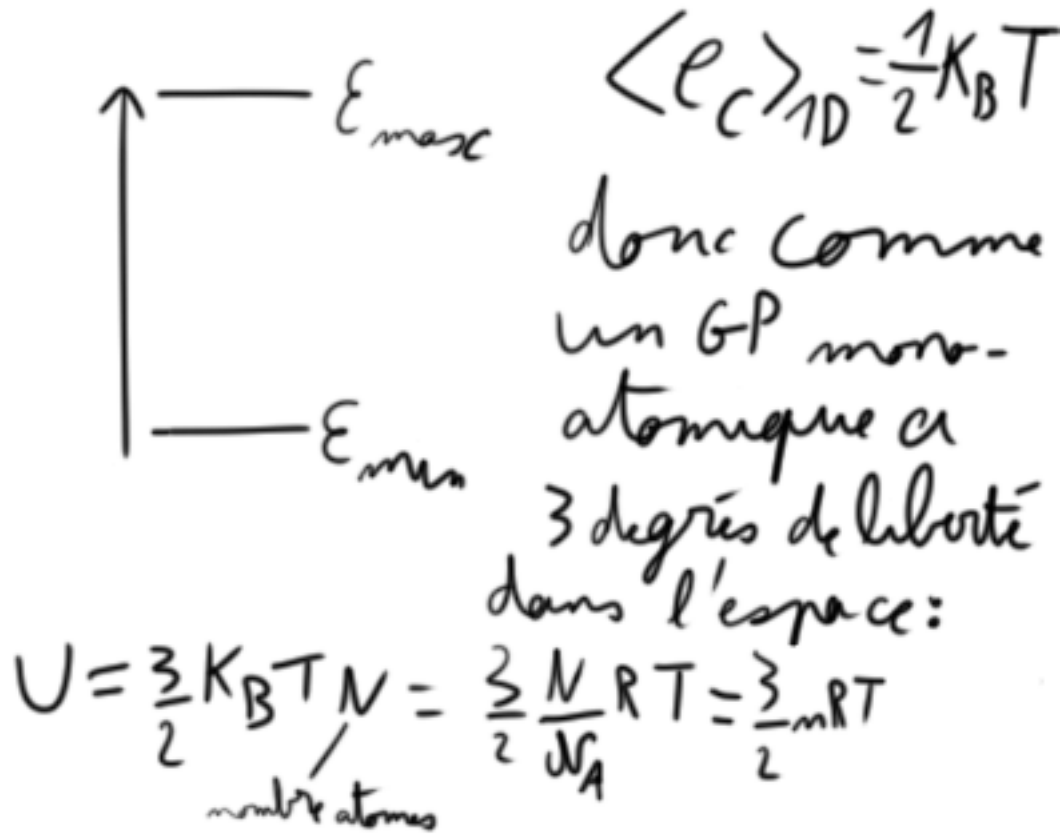 ε_max
<e_c>_1D = 1/2 K_B T
donc comme
un GP mono-
atomique a
ε_min
3 degrés de liberté
dans l'espace:
U = 3/2 K_B T N = 3/2 N/N_A R T = 3/2 nRT
nombre atomes